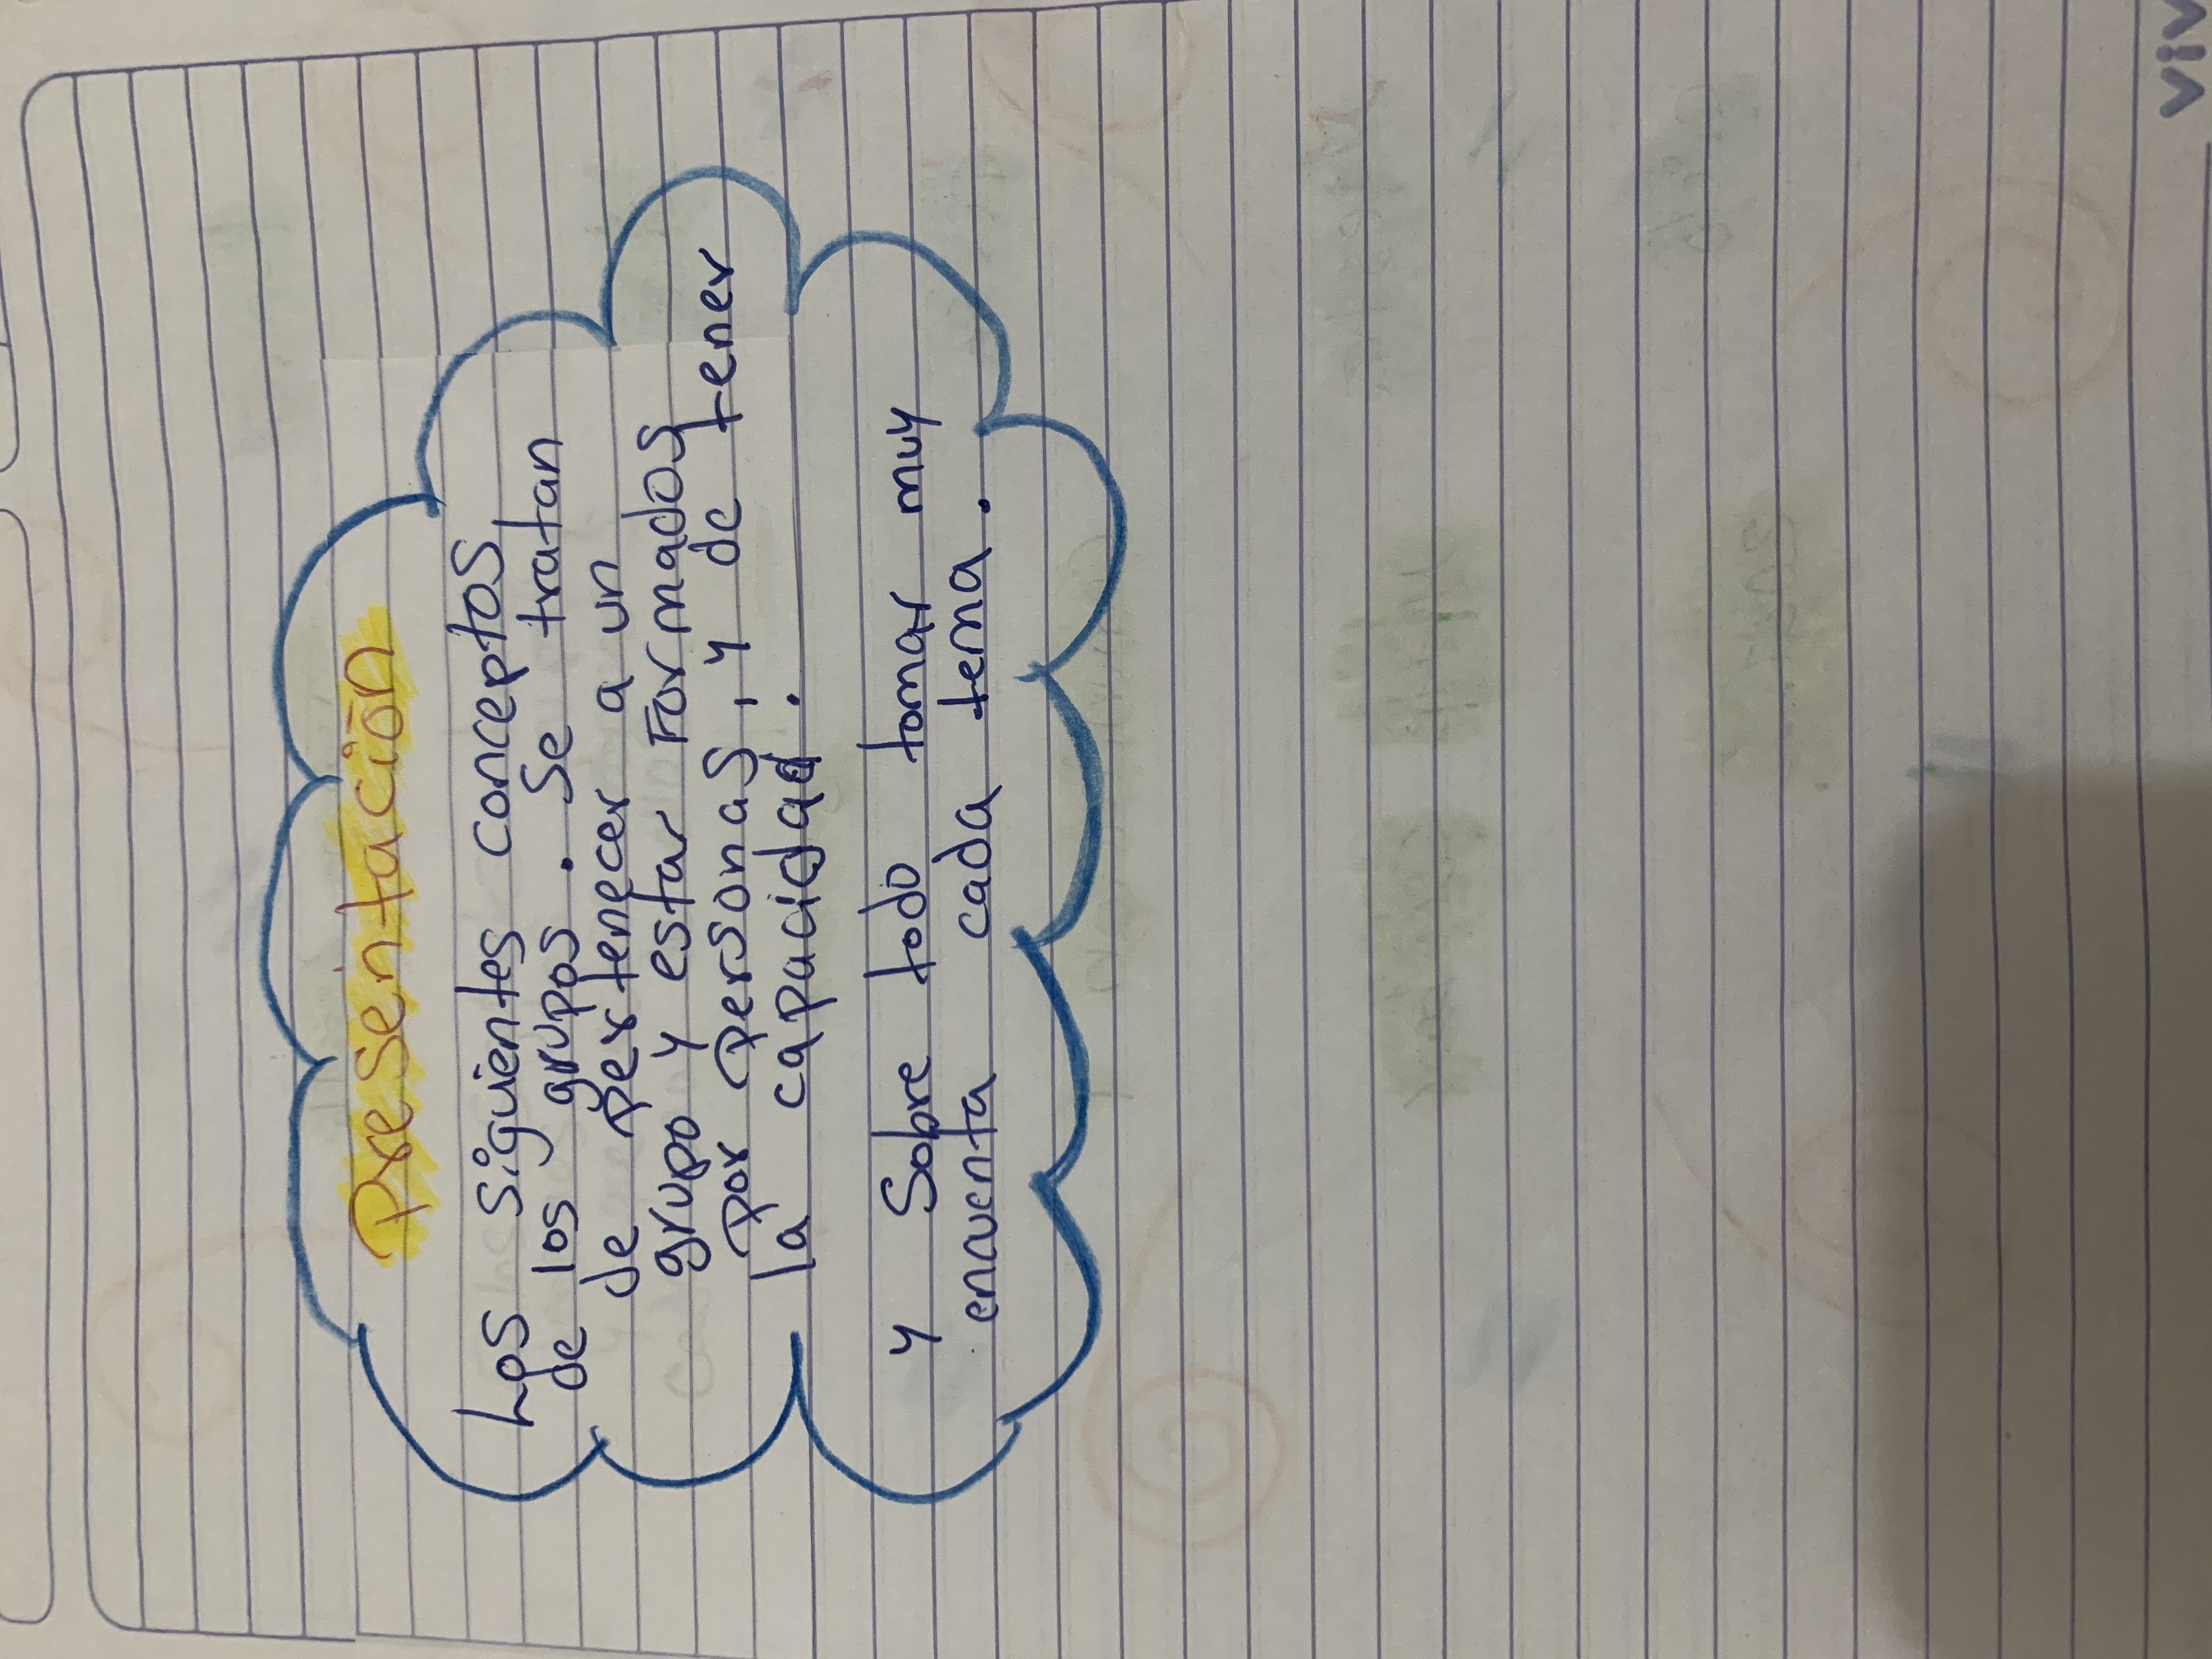 Presentación
Los siguientes conceptos
de los grupos. Se tratan
de pertenecer a un
grupo y estar Formados
Por Personas, y de tener
la capacidad.
y Sobre todo tomar muy
encuenta cada tema.